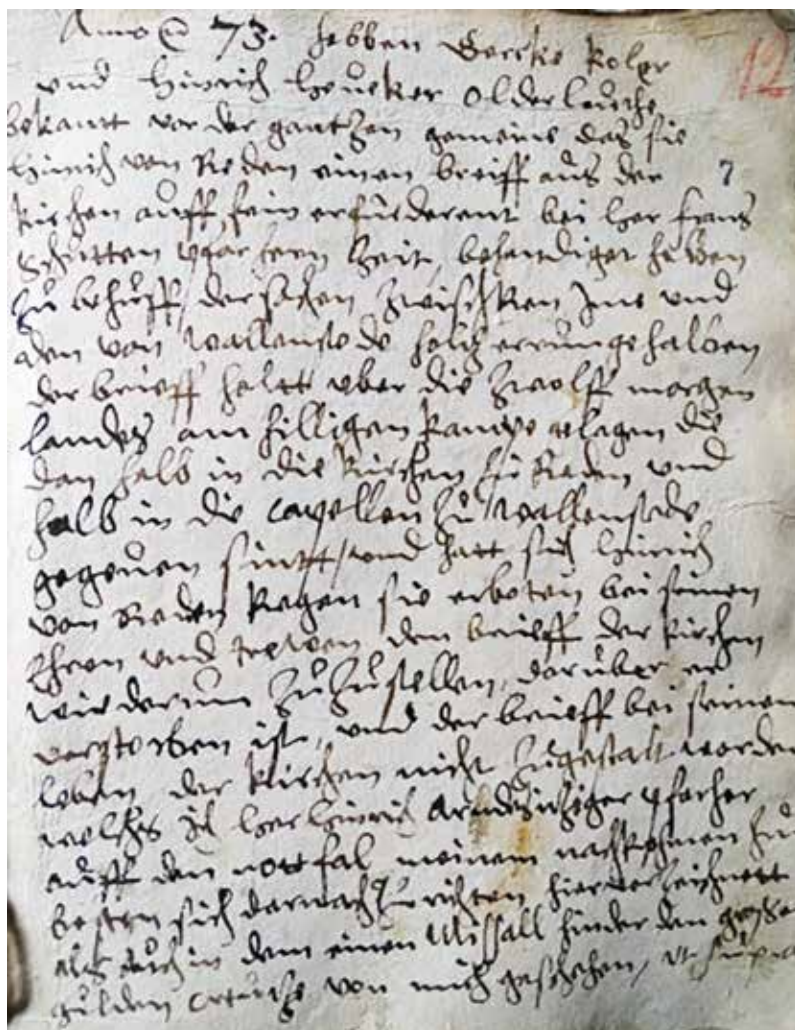 Anno 73. hebben Gereke Koler
und Hinrich Heueker olderleuthe
bekant vor der gantzen gemeine das sie
Hinrich von Reden einen breiff aus der 7
kirchen auff sein erfurderent bei her Frans
Schutten pfarhern Zeit, behandiget hebben
zu behuff der sachen zwischken Ime und
den von Wallensede halben
der breiff haltt uber die zwolff morgen
landes am hilligen Kampe belegen die
dan halb in die kirchen zu Reden und
halb in die Capellen zu Wallensede
gegeven sintt, und hatt sich Hinrich
von Reden kegen sie erboten bei seinen
Ehren und trewen den breiff der kirchen
widerum zuzustellen, daruber er
verstorben ist, und der breiff bei seinem
leben der kirchen nicht zugestalt worden
welchs ich her Hinrich pfarher
auff den nottfal meinem nachkohmen zum
besten sich darnach zu richten hier verzeichnett
als auch in dem einen Missall hinder den grossen
gulden von mich geschehen, ut supra
12